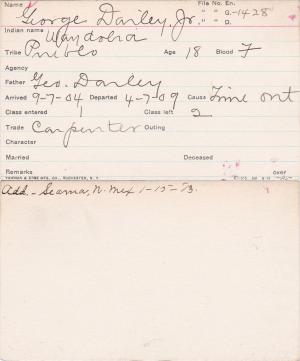 Name George Dailey, Jr. File No. En.
" " G-1428
" " D.
Indian name Waydobia
Tribe Pueblo Age 18 Blood F
Agency
Father Geo. Dailey
Arrived 9-7-04 Departed 4-7-09 Cause Time out
Class entered 1 Class left 2
Trade Carpenter Outing
Character
Married Deceased
Remarks over
YAWMAN & ERBE MFG. CO., ROCHESTER, N. Y.
Add. - Seama, N. Mex 1-15-13.